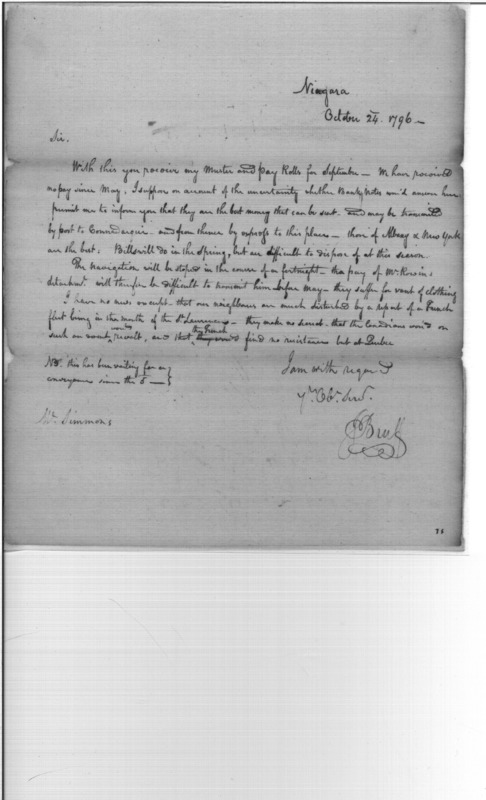 Niagara
October 24. 1796 –
Sir.
With this you receive my Muster and pay Rolls for September – We have received
no pay since May, I suppose on account of the uncertainty whether Bank Notes wou'd answer here
permit me to inform you that they are the best money that can be sent. and may be transmitted
by post to and from thence by express to this place – those of Albany & New York
are the best. Bills will do in the Spring, but are difficult to dispose of at this season.
The navigation will be stoped in the course of a fortnight – the pay of Mr.
detachmt. will therefore be difficult to transmit him before May – they suffer for want of clothing
I have no news except – that our neighbours are much disturbed by a report of a French
fleet being in the mouth of the St. Lawrence – they make no secret – that the Canadians wou'd on
such an event, revolt, and that the French wou'd find no resistance but at Quebec
NB. this has been waiting for a
conveyance since the 5 —
I am with regard
Yr. Obt. Servt.
Bruff
Mr. Simmons
75